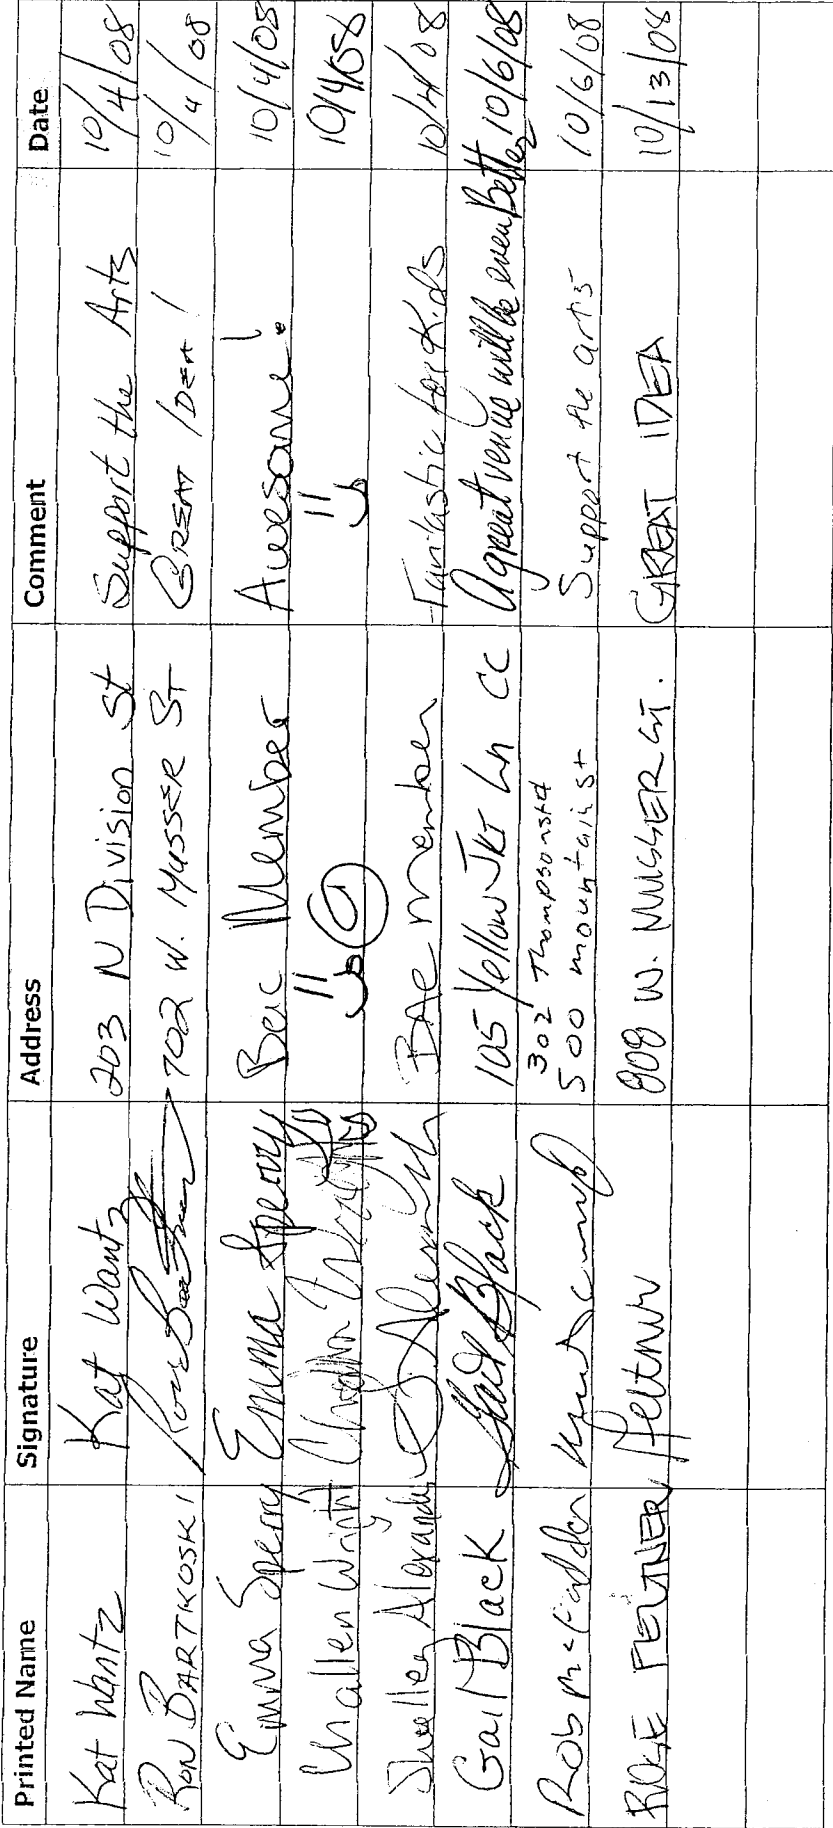 Printed Name Signature Address Comment Date
Kat Wantz Kat Wantz 203 N Division St Support the Arts 10/4/08
RON BARTKOSKI 702 W. MUSSER ST GREAT IDEA! 10/4/08
Emma Sperry Emma Sperry Beac Member Awesome! 10/4/08
Challen Wright Challen Wright " " 10/4/08
Shelley Alexander BAC member Fantastic for Kids 10/4/08
Gail Black Gail Black 105 Yellow JKT Ln CC A great venue will be even Better 10/6/08
Rob McFadden 302 Thompson st
500 mountain st Support the arts 10/6/08
FELTNER Feltner 808 W. MUSSER ST. GREAT IDEA 10/13/08